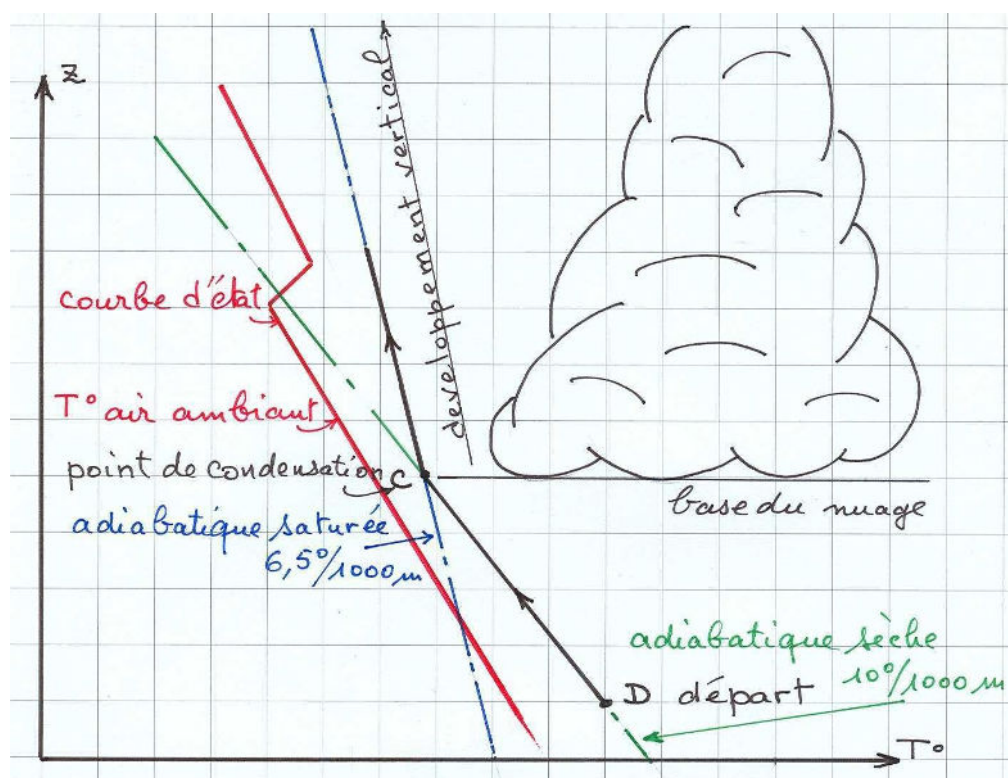 z
développement vertical
courbe d'état
T° air ambiant
point de condensation
C
base du nuage
adiabatique saturée
6,5°/1000 m
adiabatique sèche
10°/1000 m
D départ
T°